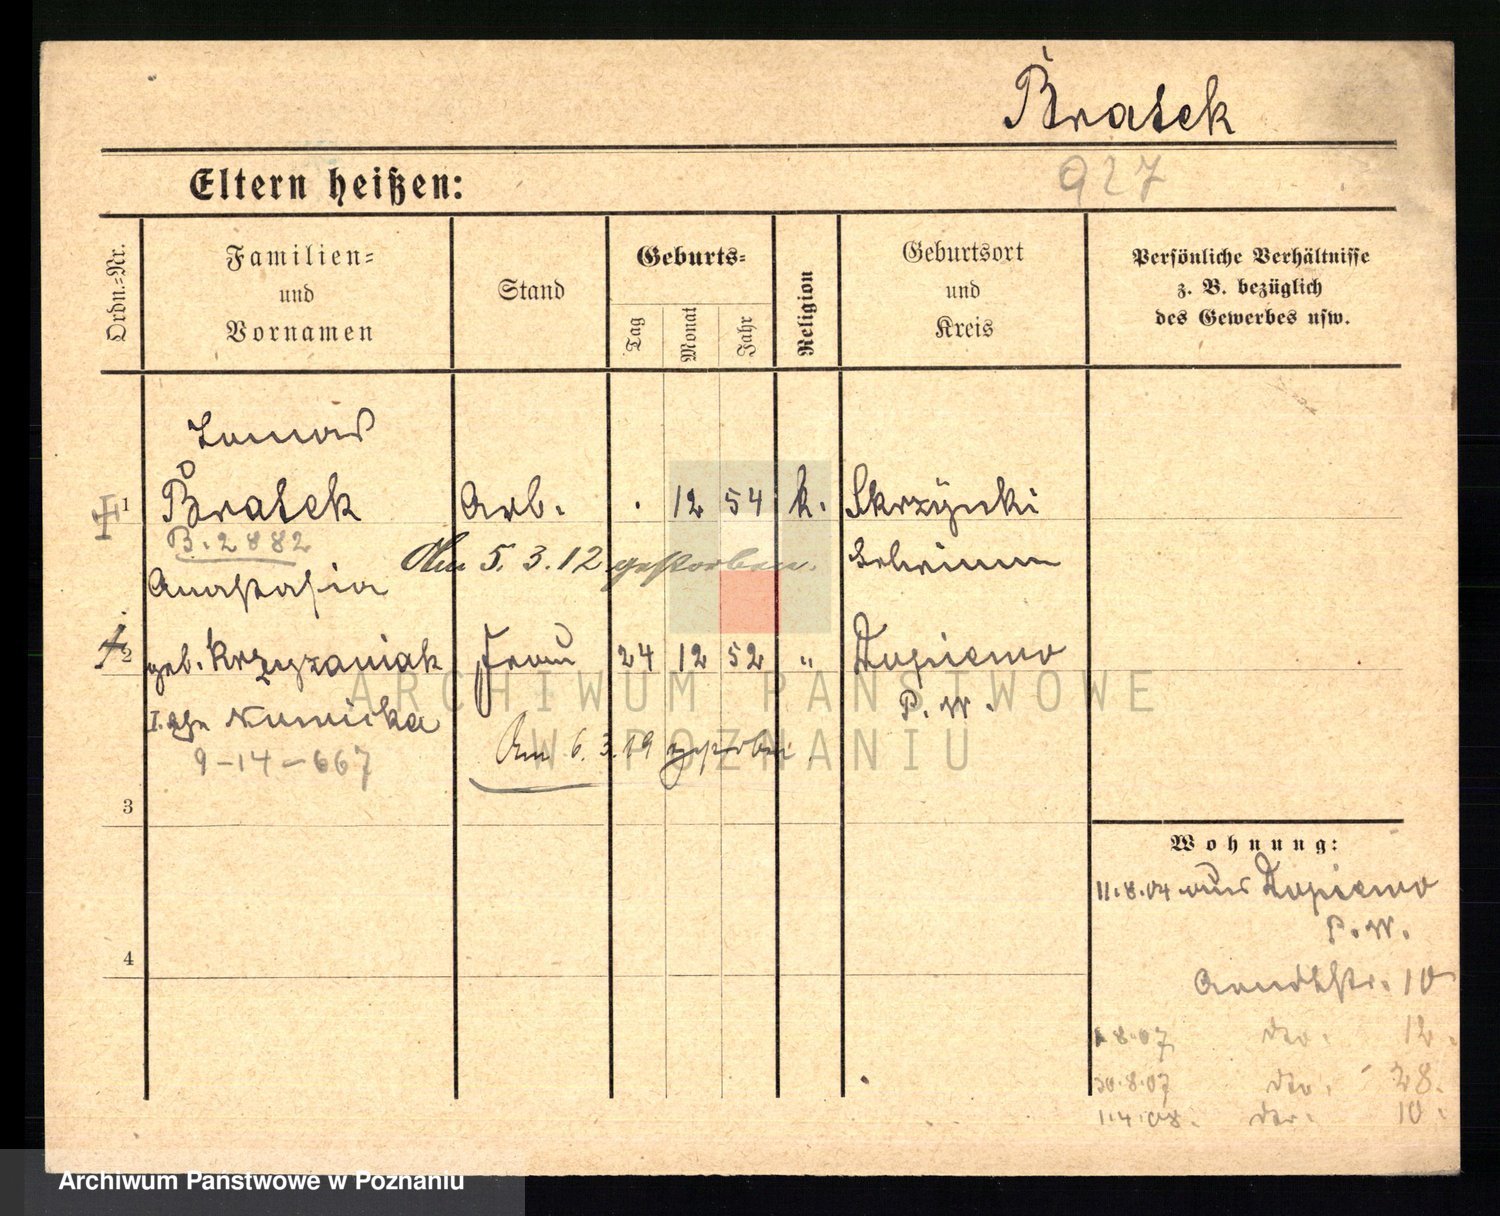 Bratek
927
Eltern heißen:
Ordn.=Nr.
Familien=
und
Vornamen
Stand
Geburts=
Tag
Monat
Jahr
Religion
Geburtsort
und
Kreis
Persönliche Verhältnisse
z. B. bezüglich
des Gewerbes usw.
Tomas
1 Bratek Arb. . 12 54 k. Skrzynki
B. 2882
Am 5. 3. 12 gestorben.
Schrimm
Anastasia
2 geb. Krzyzaniak Frau 24 12 52 "
P. W.
I. Ehe
Am 6. 3. 19 gestorben.
9-14-667
3
4
Wohnung:
11.8.04 aus
P. W.
Arndtstr. 10
8.07 dto. 12.
30.8.07 dto. 28.
1.4.08. dto. 10.
ARCHIWUM PAŃSTWOWE
W POZNANIU
Archiwum Państwowe w Poznaniu